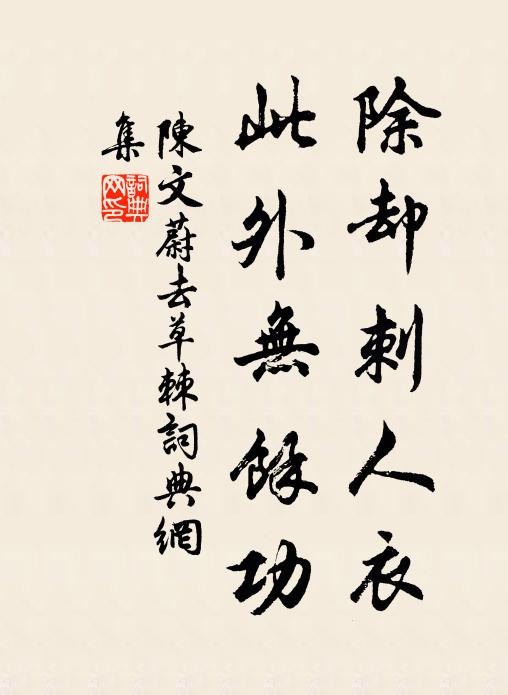 除却刺人衣
此外無餘功
陳文蔚去草棘詞典網
集
詞典網印